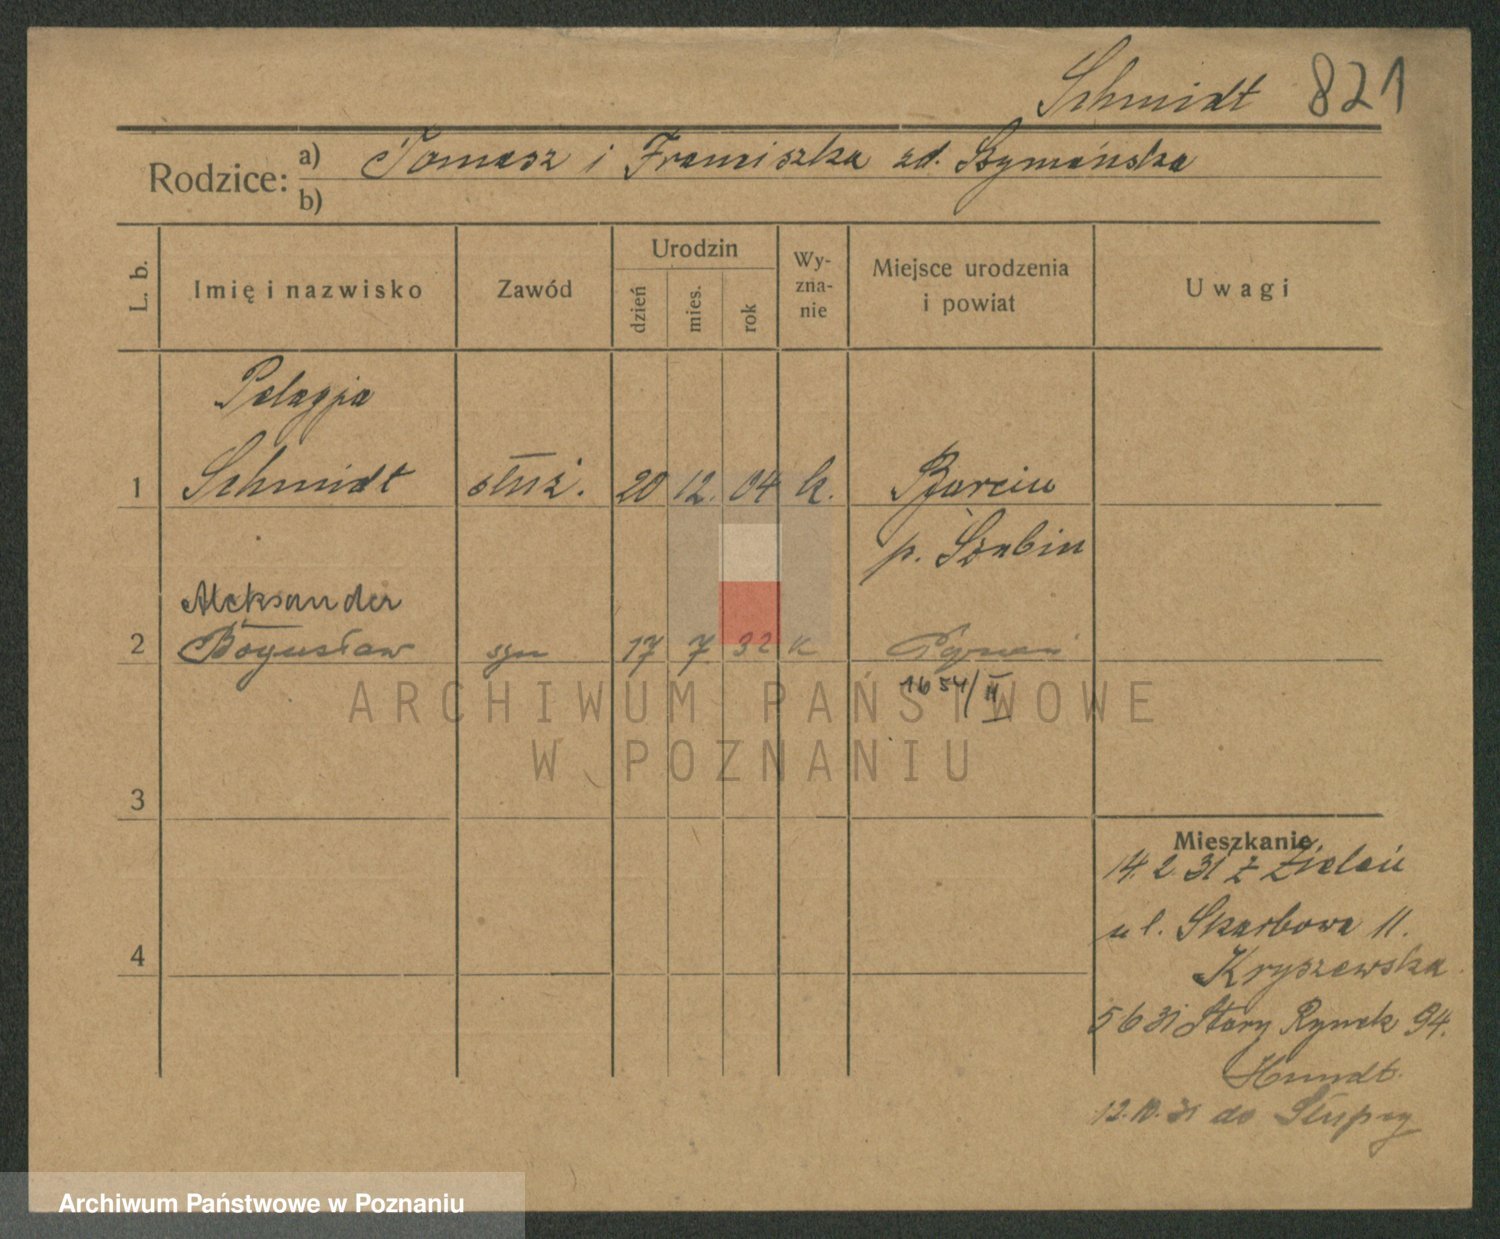 Schmidt 821
Rodzice: a) Tomasz i Franciszka zd. Szymańska
b)
L. b. Imię i nazwisko Zawód Urodzin dzień mies. rok Wy-zna-nie Miejsce urodzenia i powiat Uwagi
Pelagja
1 Schmidt służ. 20 12. 04 k. Barcin
p. Szubin
Aleksander
2 Bogusław syn 17 7 32 k
1654/II
3
4
Mieszkanie
14.2 31 z Zieleń
ul. Skarbowa 11.
Kryszewska
5 6 31 Stary Rynek 94.
Hundt.
12.10.31 do Słupcy
ARCHIWUM PAŃSTWOWE
W POZNANIU
Archiwum Państwowe w Poznaniu